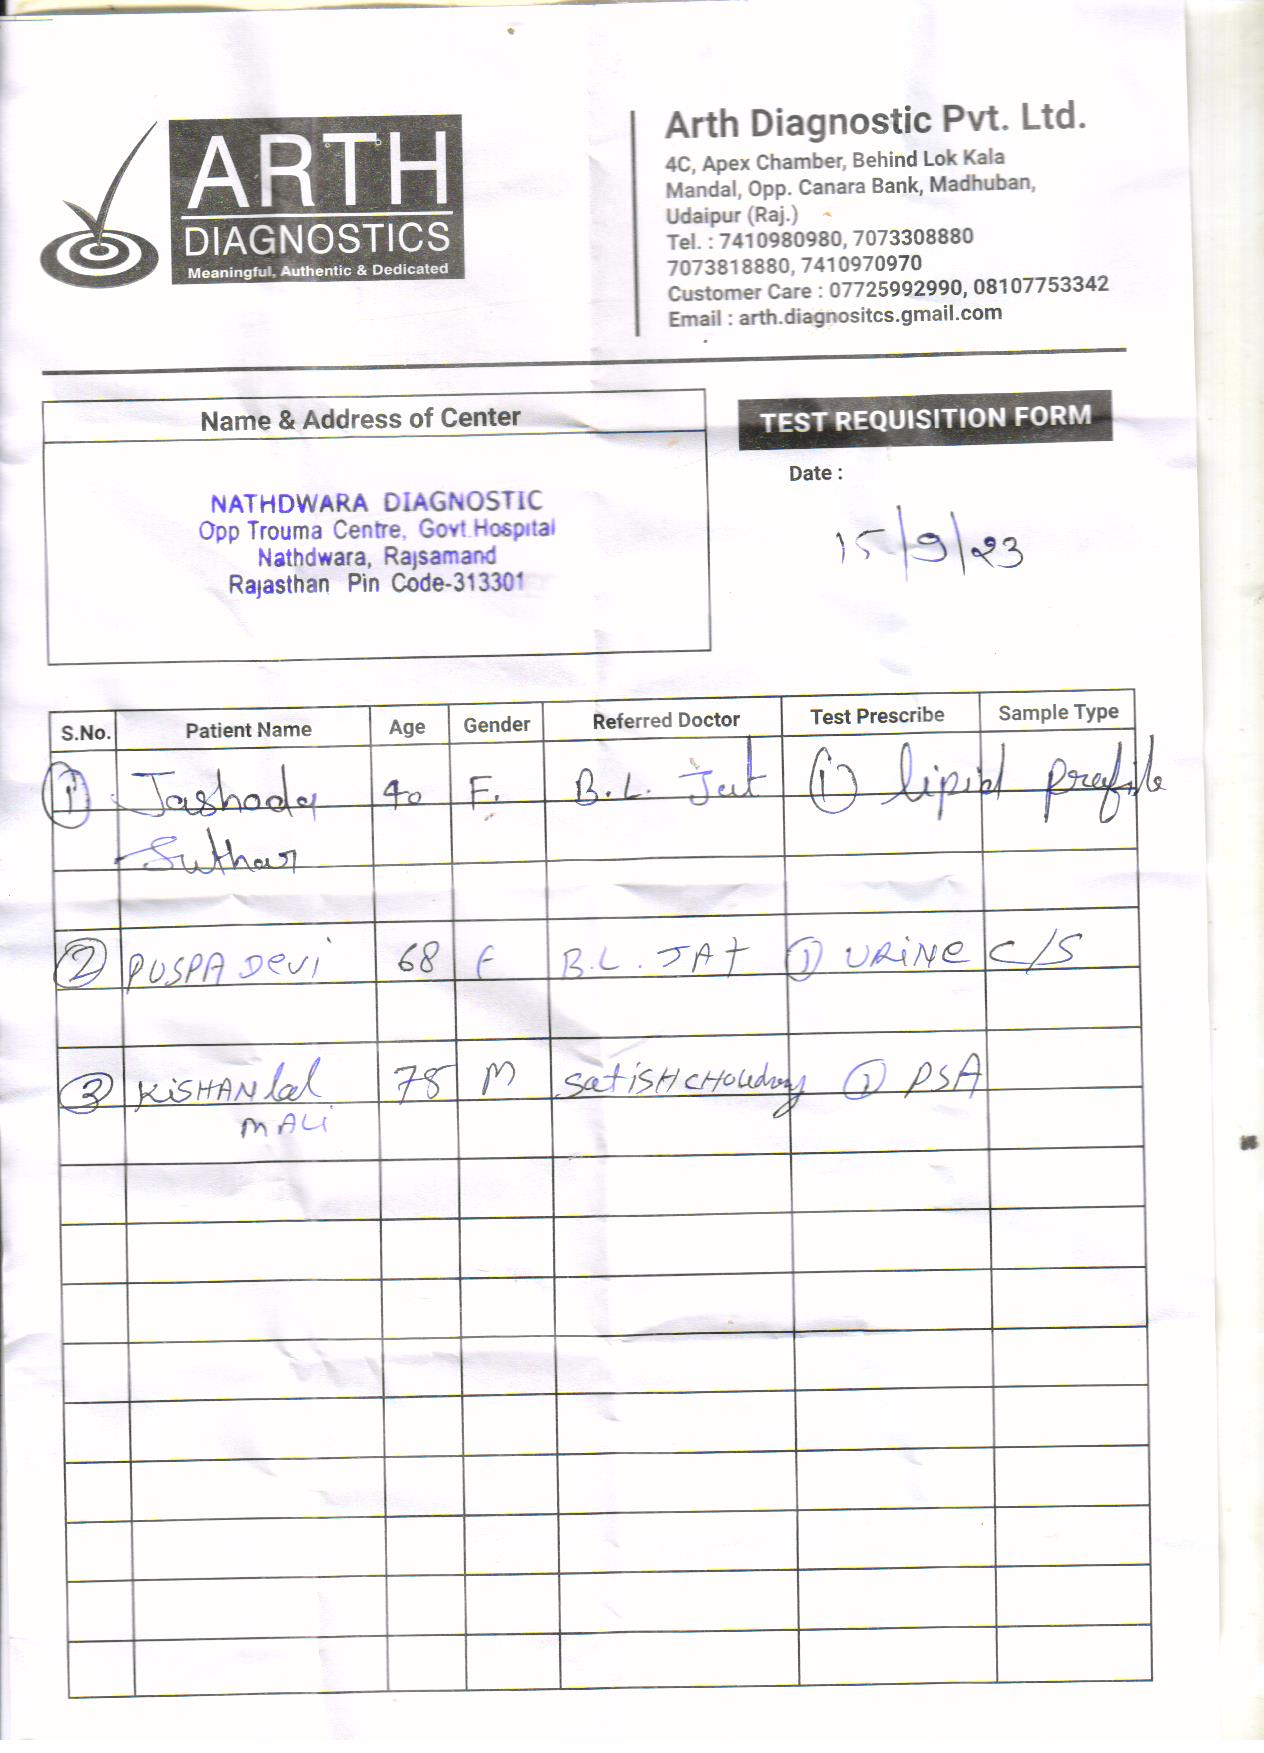 ARTH
DIAGNOSTICS
Meaningful, Authentic & Dedicated
Arth Diagnostic Pvt. Ltd.
4C, Apex Chamber, Behind Lok Kala
Mandal, Opp. Canara Bank, Madhuban,
Udaipur (Raj.)
Tel. : 7410980980, 7073308880
7073818880, 7410970970
Customer Care : 07725992990, 08107753342
Email : arth.diagnositcs.gmail.com
Name & Address of Center
NATHDWARA DIAGNOSTIC
Opp Trouma Centre, Govt.Hospital
Nathdwara, Rajsamand
Rajasthan Pin Code-313301
TEST REQUISITION FORM
Date :
15/9/23
S.No. Patient Name Age Gender Referred Doctor Test Prescribe Sample Type
1 Jashoda 40 F. B.L. Jat 1) lipid profile
Suthar
2 PUSPA Devi 68 F B.L. JAT 1) URINE C/S
3 KiSHAN lal 78 M SatiSH CHOUdhary 1) PSA
MALi